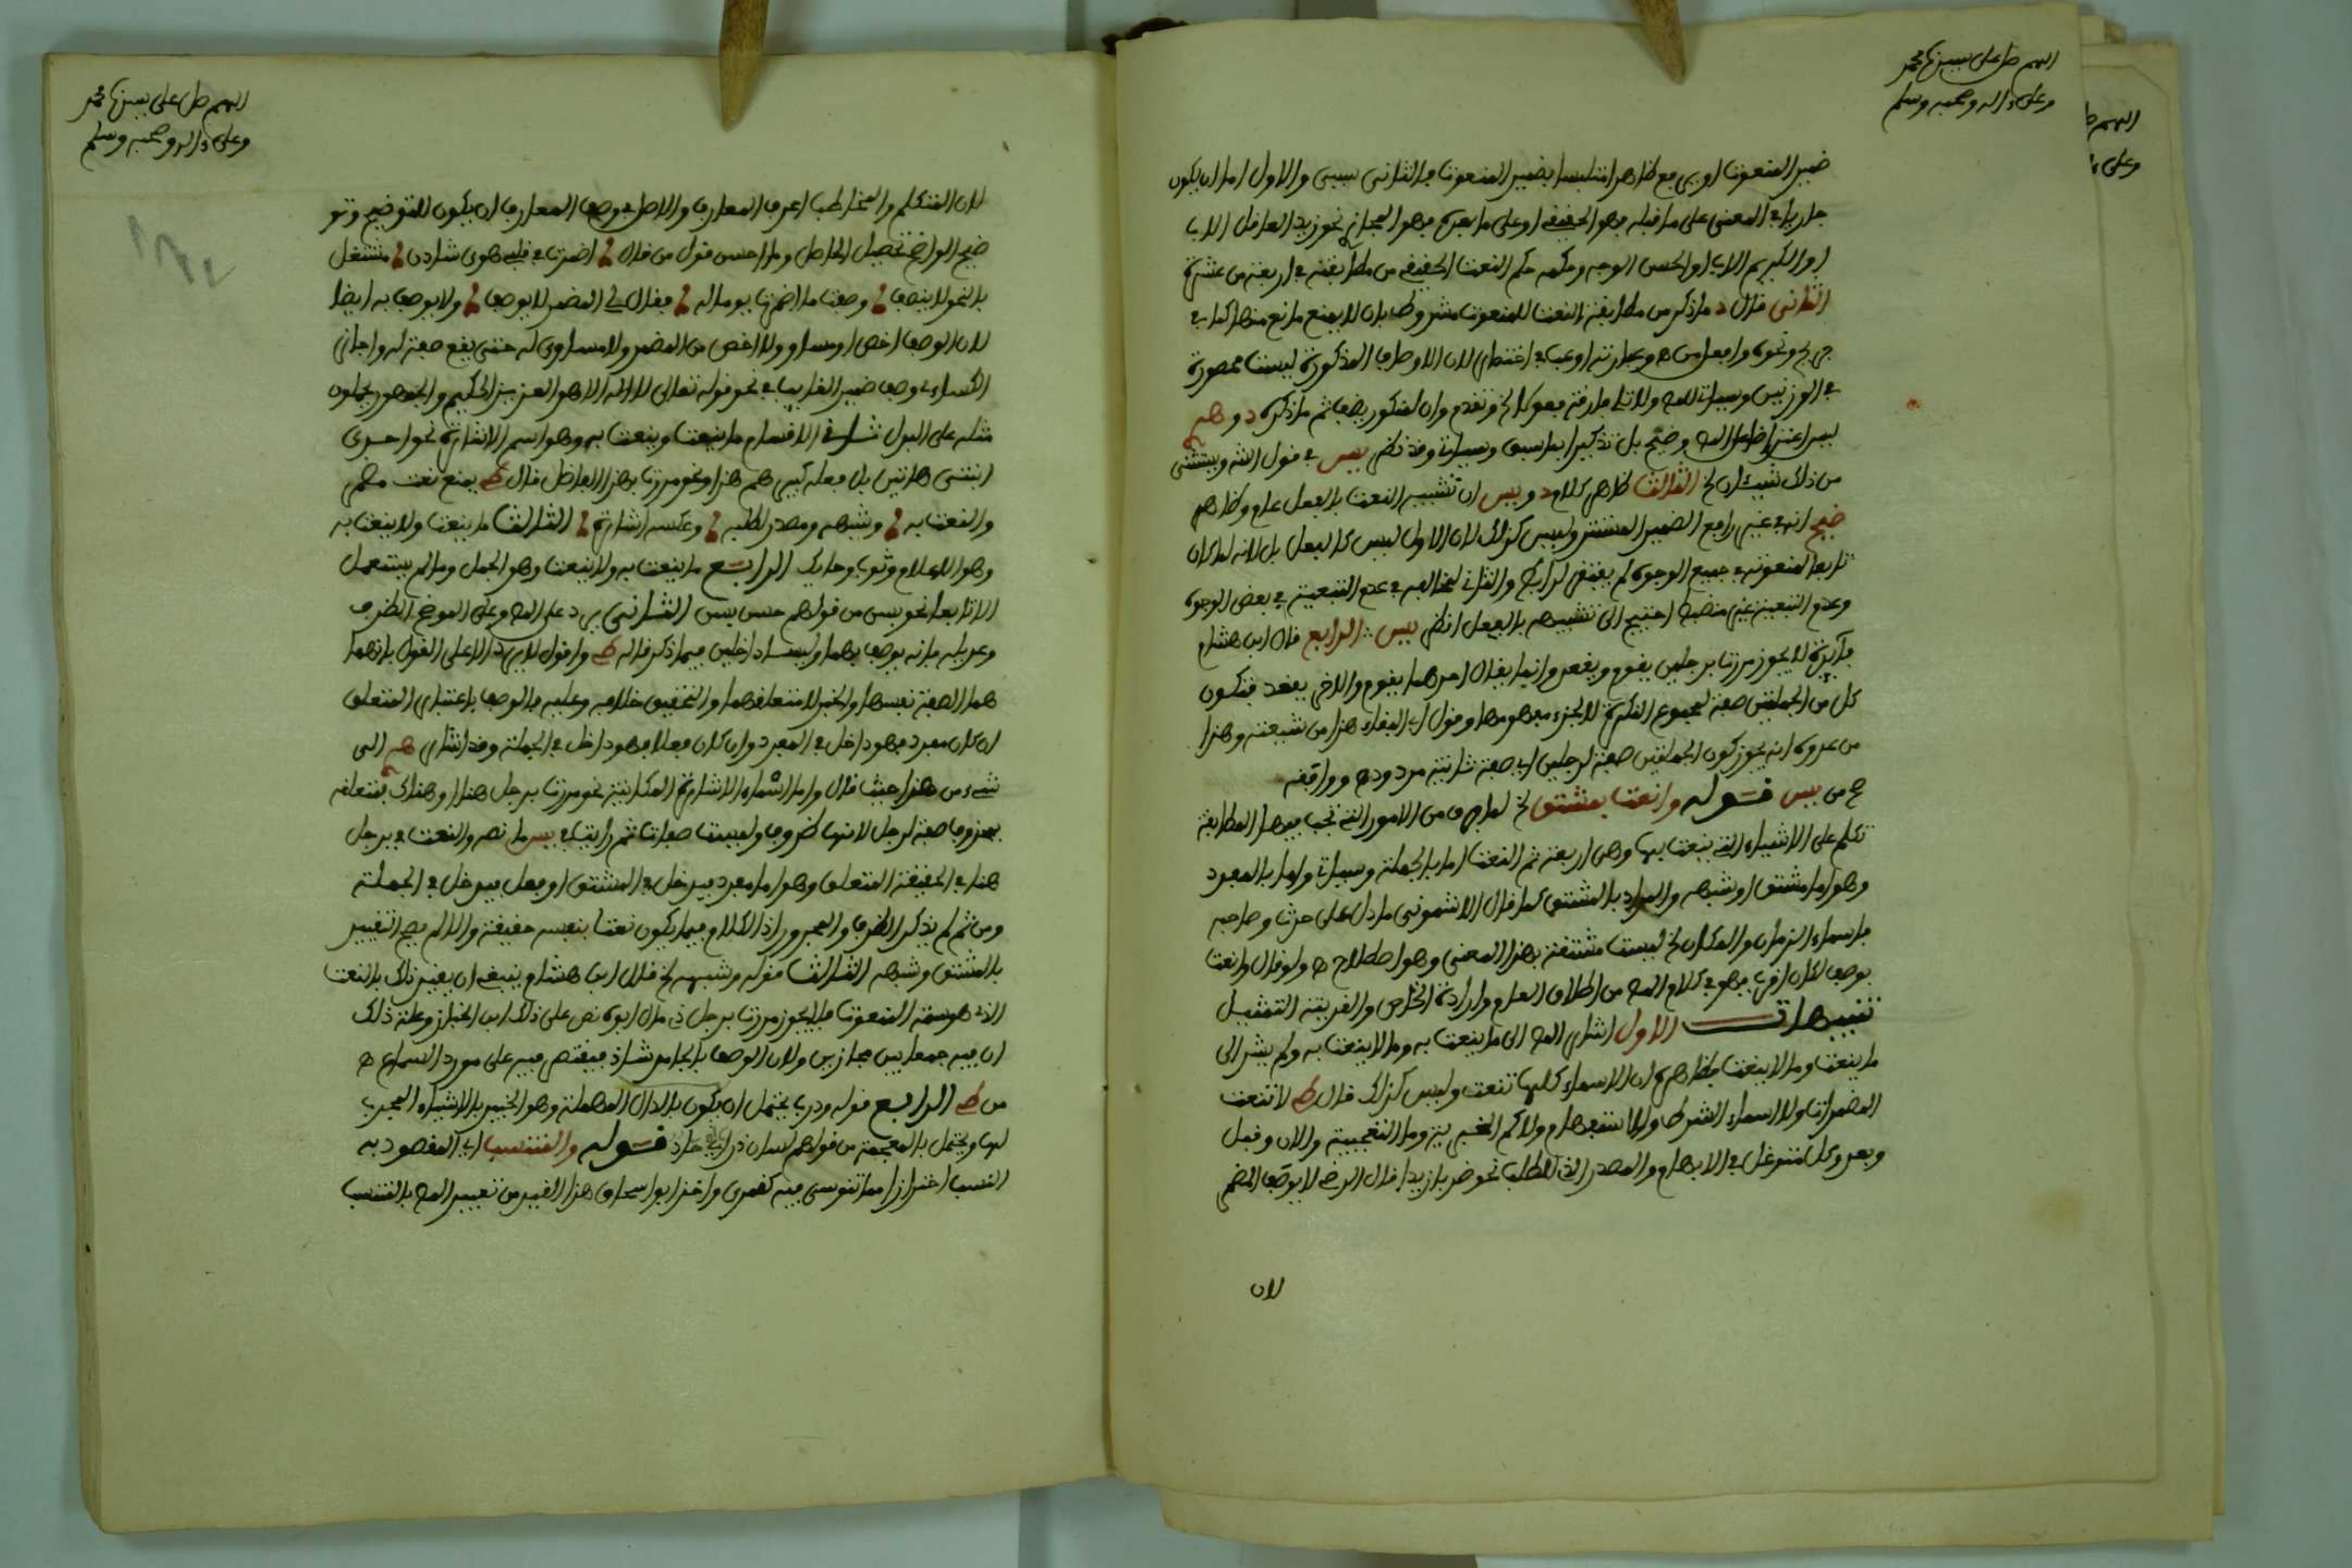 اللهم صل على سيدنا محمد
وعلى ءاله وصحبه وسلم
ضمير المنعوت او يرفع ظاهرا متلبسا بضمير المنعوت فالثاني سببي والاول اما ان يكون
جاريا في المعنى على ما قبله فهو الحقيقي او على ما بعده فهو المجازي نحو زيد العاقل الاب
او الكريم الاب او الحسن الوجه وحكمه حكم النعت الحقيقي من مطابقته في اربعة من عشرة
الثاني قال د ما ذكر من مطابقة النعت للمنعوت مشروط بان لا يمنع مانع منها كما في
جريح ونحوه وافعل من ه وعبارته اوعب في اختصار لان الاوصاف المذكورة ليست محصورة
في الوزنين
ليس اعتراضا على المص وضح بل تذكيرا بما سبق وسياتي وقد نظر يس في قول الش ويستثنى
من ذلك شيئان الخ الثالث ظاهر كلام د ويس ان تشبيه النعت بالفعل عام وظاهر
ضيح انه في غير رافع الضمير المستتر وليس كذلك لان الاول ليس كالفعل بل لانه لما كان
تابعا لمنعوته في جميع الوجوه لم يفتقر لرابع والثاني لمخالفه في عدم التبعية في بعض الوجوه
وعدم التبعية غير منضبط احتيج الى تشبيهه بالفعل انظر يس الرابع قال ابن هشام
فائدة لا يجوز مررت برجلين يقوم ويقعد وانما يقال احدهما يقوم والاخر يقعد فتكون
كل من الجملتين صفة لمجموع النكرة لا لجزء مفهومها وقول ابي البقاء هذا من شيعته وهذا
من عدوه انه يجوز كون الجملتين صفة لرجلين اي صفة ثانية مردود ه ووافقه
ح من يس قوله وانعت بمشتق الخ لما من الامور التي تجب فيها المطابقة
تكلم على الاشياء التي ينعت بها وهي اربعة ثم النعت اما بالجملة وسياتي واما بالمفرد
وهو اما مشتق او شبهه والمراد بالمشتق كما قال الاشموني ما دل على حدث وصاحبه
فاسماء الزمان والمكان الخ ليست مشتقة بهذا المعنى وهو اصطلاح ه ولو قال وانعت
بوصف لكان اقرب فهو في كلام المص من اطلاق العام وارادة الخاص والقرينة التمثيل
تنبيهات الاول اشار المص الى ما ينعت به وما لا ينعت به ولم يشر الى
ما ينعت وما لا ينعت فظاهره ان الاسماء كلها تنعت وليس كذلك قال ط لا تنعت
المضمرات ولا اسماء الشرط ولا الاستفهام ولا كم الخبرية وما التعجبية والان وقبل
وبعد وكل متوغل في الابهام والمصدر الذي للطلب نحو ضربا زيدا قال الرضي لا يوصف المضمر
لان
اللهم صل على سيدنا محمد
وعلى ءاله وصحبه وسلم
لان المتكلم والمخاطب اعرف المعارف والاصل في وصف المعارف ان يكون للتوضيح وتو
ضيح الواضح تحصيل الحاصل وما احسن قول من قال اضمرت في قلبي هوى شادن مشتغل
بالنحو لا ينصف وصفت ما اضمرت يوما له فقال لي المضمر لا يوصف ولا يوصف به ايضا
لان الوصف اخص او مساو ولا اخص من المضمر ولا مساوي له حتى يقع صفة له واجاز
الكسائي وصف ضمير الغائب في نحو قوله تعالى لا اله الا هو العزيز الحكيم والجمهور يحملون
مثله على البدل ثاني الاقسام ما ينعت وينعت به وهو اسم الاشارة نحو احدى
ابنتي هاتين بل فعله كبيرهم هذا ونحو مررت بهذا الفاضل قال ط يمنع نعت مضمر
والنعت به وشبهه ومصدر لطلبه وعكسه اشارة الثالث ما ينعت ولا ينعت به
وهو الاعلام وثوب وحائك الرابع ما ينعت به ولا ينعت وهو الجمل وما لم يستعمل
الا تابعا نحو بسن من قولهم حسن بسن الثاني يرد على المص وعلى الموضح الظرف
وعديله فانه يوصف بهما وليسا داخلين فيما ذكر قاله ط واقول لا يرد الا على القول بانهما
هما الصفة نفسها والخبر لا متعلقهما والتحقيق خلافه وعليه فالوصف باعتبار المتعلق
ان كان مفردا فهو داخل في المفرد وان كان فعلا فهو داخل في الجملة وقد اشار الى
شيء من هذا حيث قال واما اسماء الاشارة المكانية نحو مررت برجل هنا او هناك فمتعلقه
بمحذوف صفة لرجل لانها ظروف وليست صفات ثم رايت في يس ما نصه والنعت في برجل
هنا في الحقيقة المتعلق وهو اما مفرد فيدخل في المشتق او فعل فيدخل في الجملة
ومن ثم لم يذكر الظرف والمجرور اذ الكلام فيما يكون نعتا بنفسه حقيقة والا لم يصح التقييد
بالمشتق وشبهه الثالث قوله وشبهه الخ قال ابن هشام ينبغي ان يقيد ذلك بالنعت
الذي هو سمة المنعوت فلا يجوز مررت برجل ذي مال ابوه نص على ذلك ابن الخباز وعلة ذلك
ان فيه جمعا بين مجازين ولان الوصف بالجامد شاذ فيقتصر فيه على مورد السماع ه
من ط الرابع قوله وذرب يحتمل ان يكون بالدال المهملة وهو الخبير بالاشياء المجرب
لها ويحتمل بالمعجمة من قولهم لسان ذرب اي حاد قوله والمنتسب اي المقصود به
النسب احترازا مما تنوسي فيه كقمري واخذ ابو اسحاق هذا القيد من تعبير المص بالمنتسب